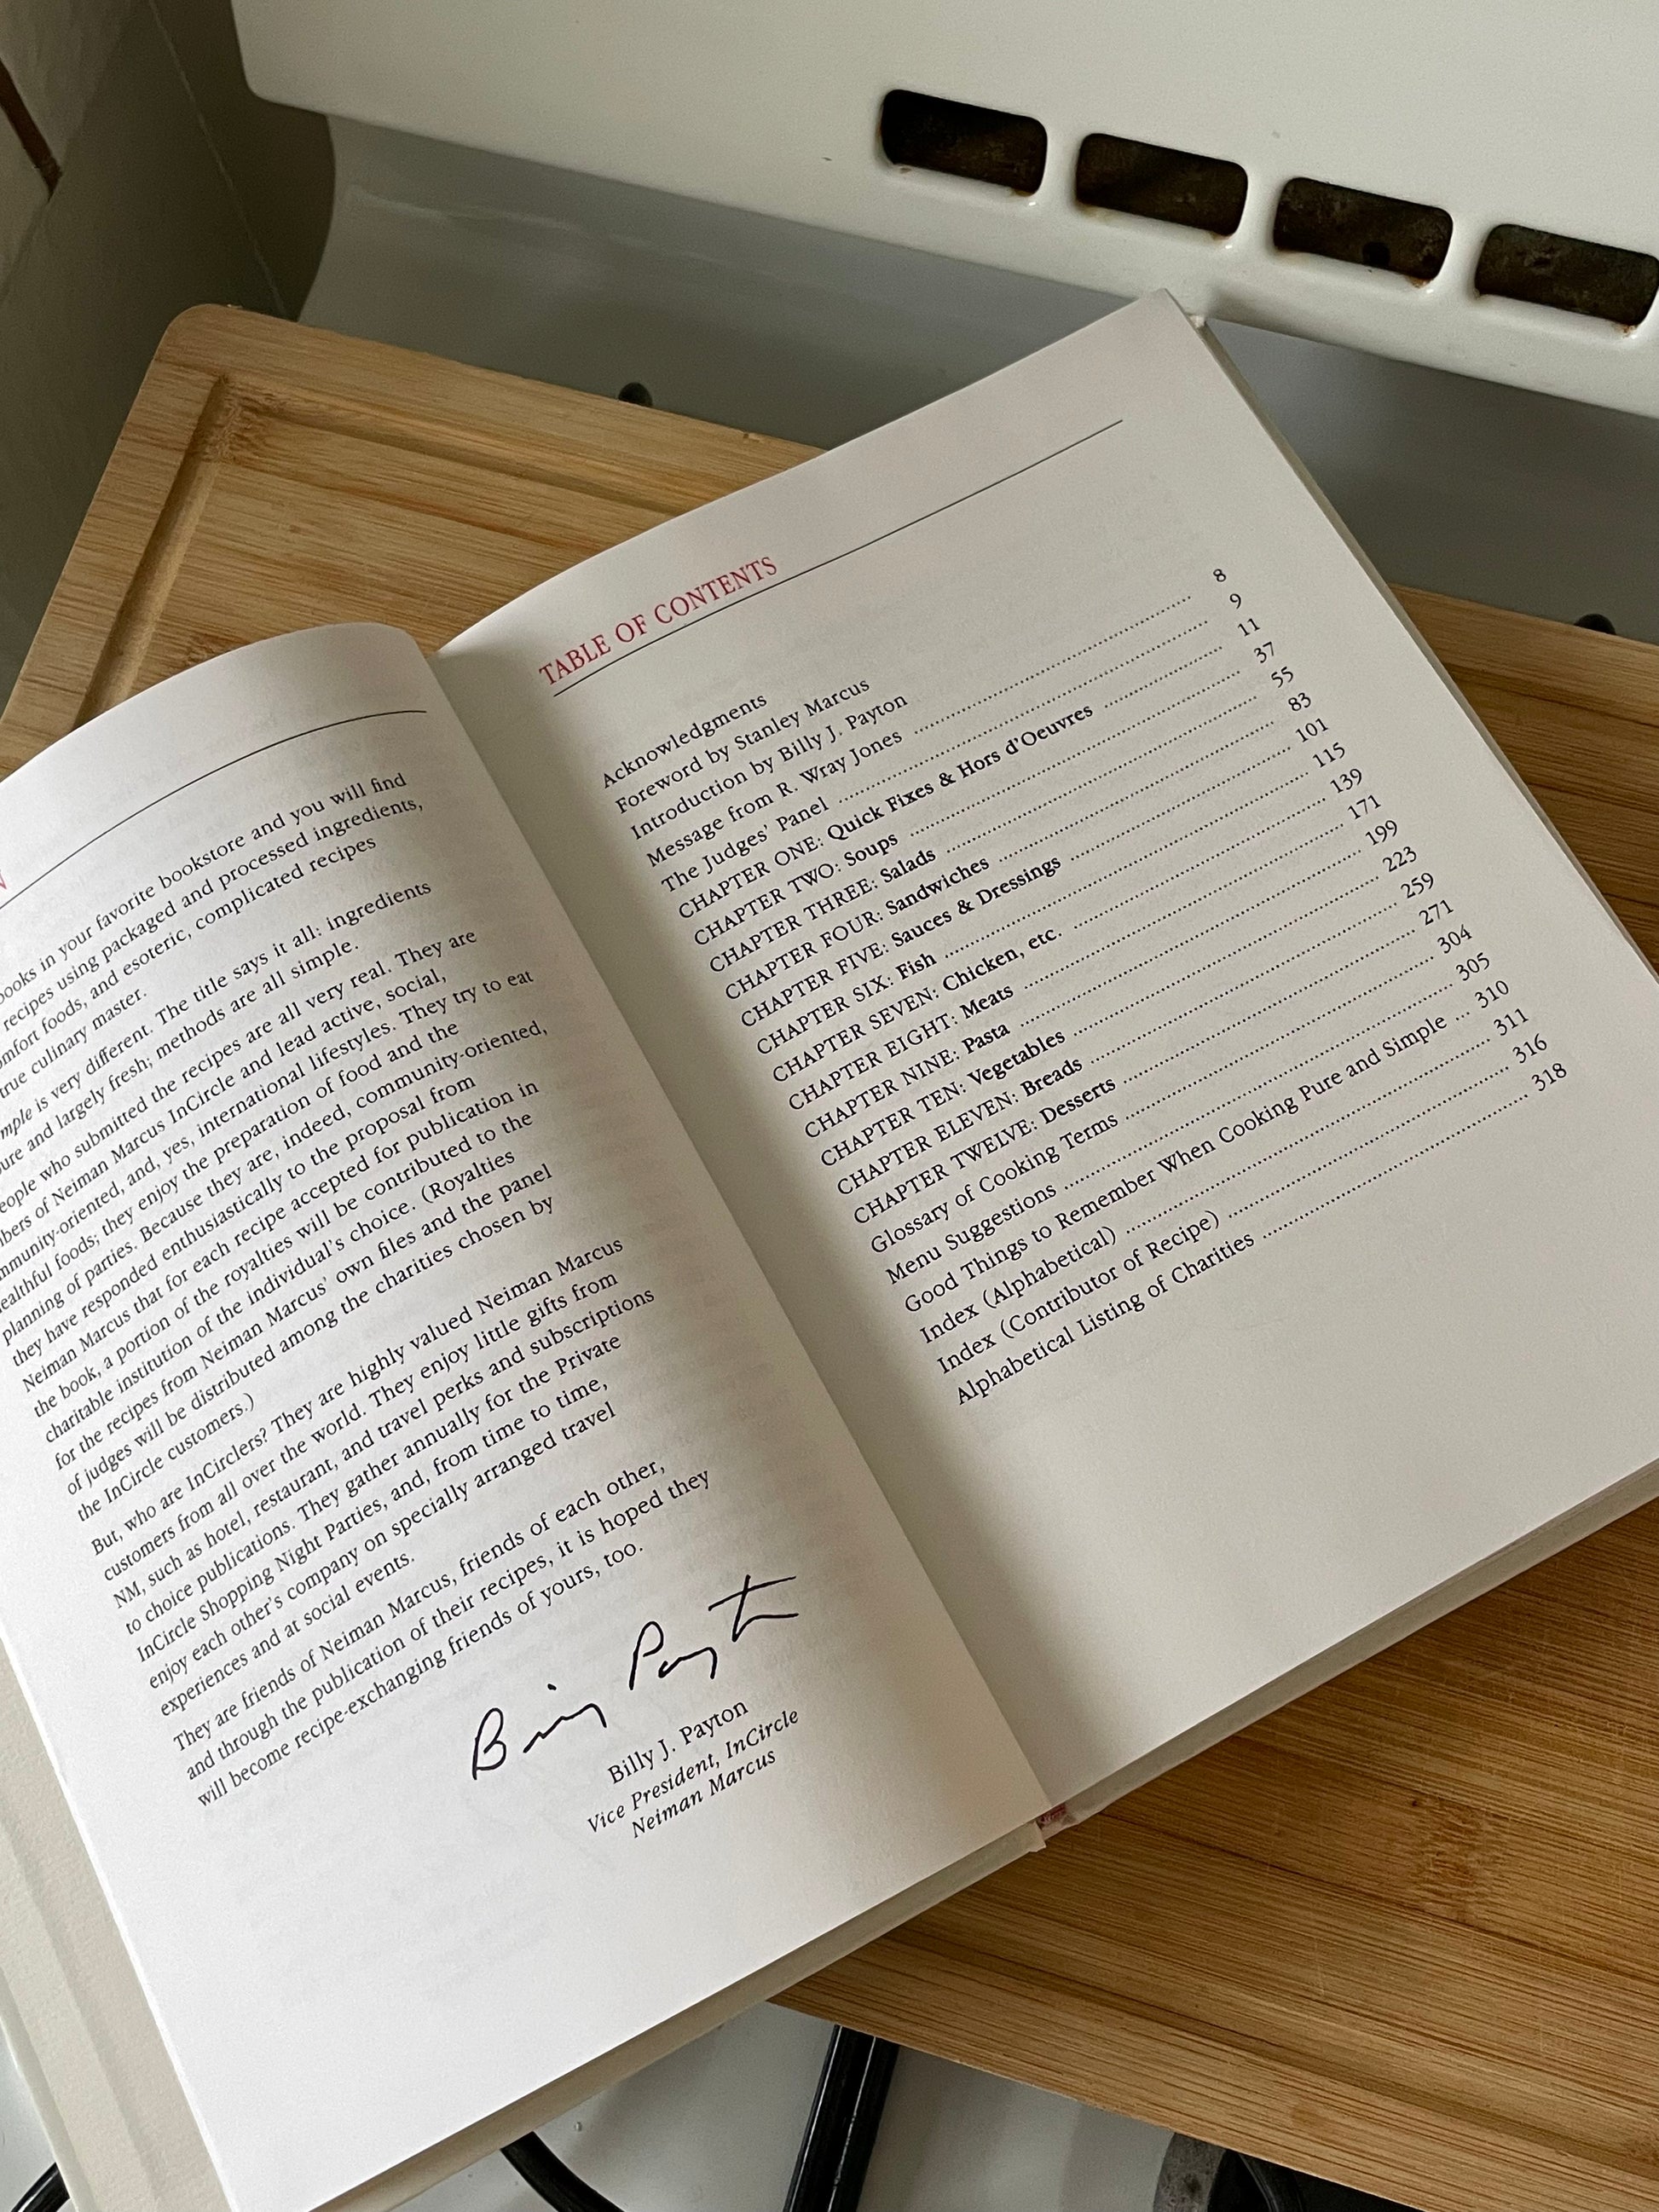 books in your favorite bookstore and you will find
recipes using packaged and processed ingredients,
foods, and esoteric, complicated recipes
true culinary master.
is very different. The title says it all: ingredients
and largely fresh; methods are all simple.
who submitted the recipes are all very real. They are
of Neiman Marcus InCircle and lead active, social,
and, yes, international lifestyles. They try to eat
foods; they enjoy the preparation of food and the
planning of parties. Because they are, indeed, community-oriented,
they have responded enthusiastically to the proposal from
Neiman Marcus that for each recipe accepted for publication in
the book, a portion of the royalties will be contributed to the
charitable institution of the individual's choice. (Royalties
for the recipes from Neiman Marcus' own files and the panel
of judges will be distributed among the charities chosen by
the InCircle customers.)
But, who are InCirclers? They are highly valued Neiman Marcus
customers from all over the world. They enjoy little gifts from
NM, such as hotel, restaurant, and travel perks and subscriptions
to choice publications. They gather annually for the Private
InCircle Shopping Night Parties, and, from time to time,
enjoy each other's company on specially arranged travel
experiences and at social events.
They are friends of Neiman Marcus, friends of each other,
and through the publication of their recipes, it is hoped they
will become recipe-exchanging friends of yours, too.
Billy Payton
Billy J. Payton
Vice President, InCircle
Neiman Marcus
TABLE OF CONTENTS
Acknowledgments
Foreword by Stanley Marcus
Introduction by Billy J. Payton
Message from R. Wray Jones ........ 8
The Judges' Panel ........ 9
CHAPTER ONE: Quick Fixes & Hors d'Oeuvres ........ 11
CHAPTER TWO: Soups ........ 37
CHAPTER THREE: Salads ........ 55
CHAPTER FOUR: Sandwiches ........ 83
CHAPTER FIVE: Sauces & Dressings ........ 101
CHAPTER SIX: Fish ........ 115
CHAPTER SEVEN: Chicken, etc. ........ 139
CHAPTER EIGHT: Meats ........ 171
CHAPTER NINE: Pasta ........ 199
CHAPTER TEN: Vegetables ........ 223
CHAPTER ELEVEN: Breads ........ 259
CHAPTER TWELVE: Desserts ........ 271
Glossary of Cooking Terms ........ 304
Menu Suggestions ........ 305
Good Things to Remember When Cooking Pure and Simple ... 310
Index (Alphabetical) ........ 311
Index (Contributor of Recipe) ........ 316
Alphabetical Listing of Charities ........ 318